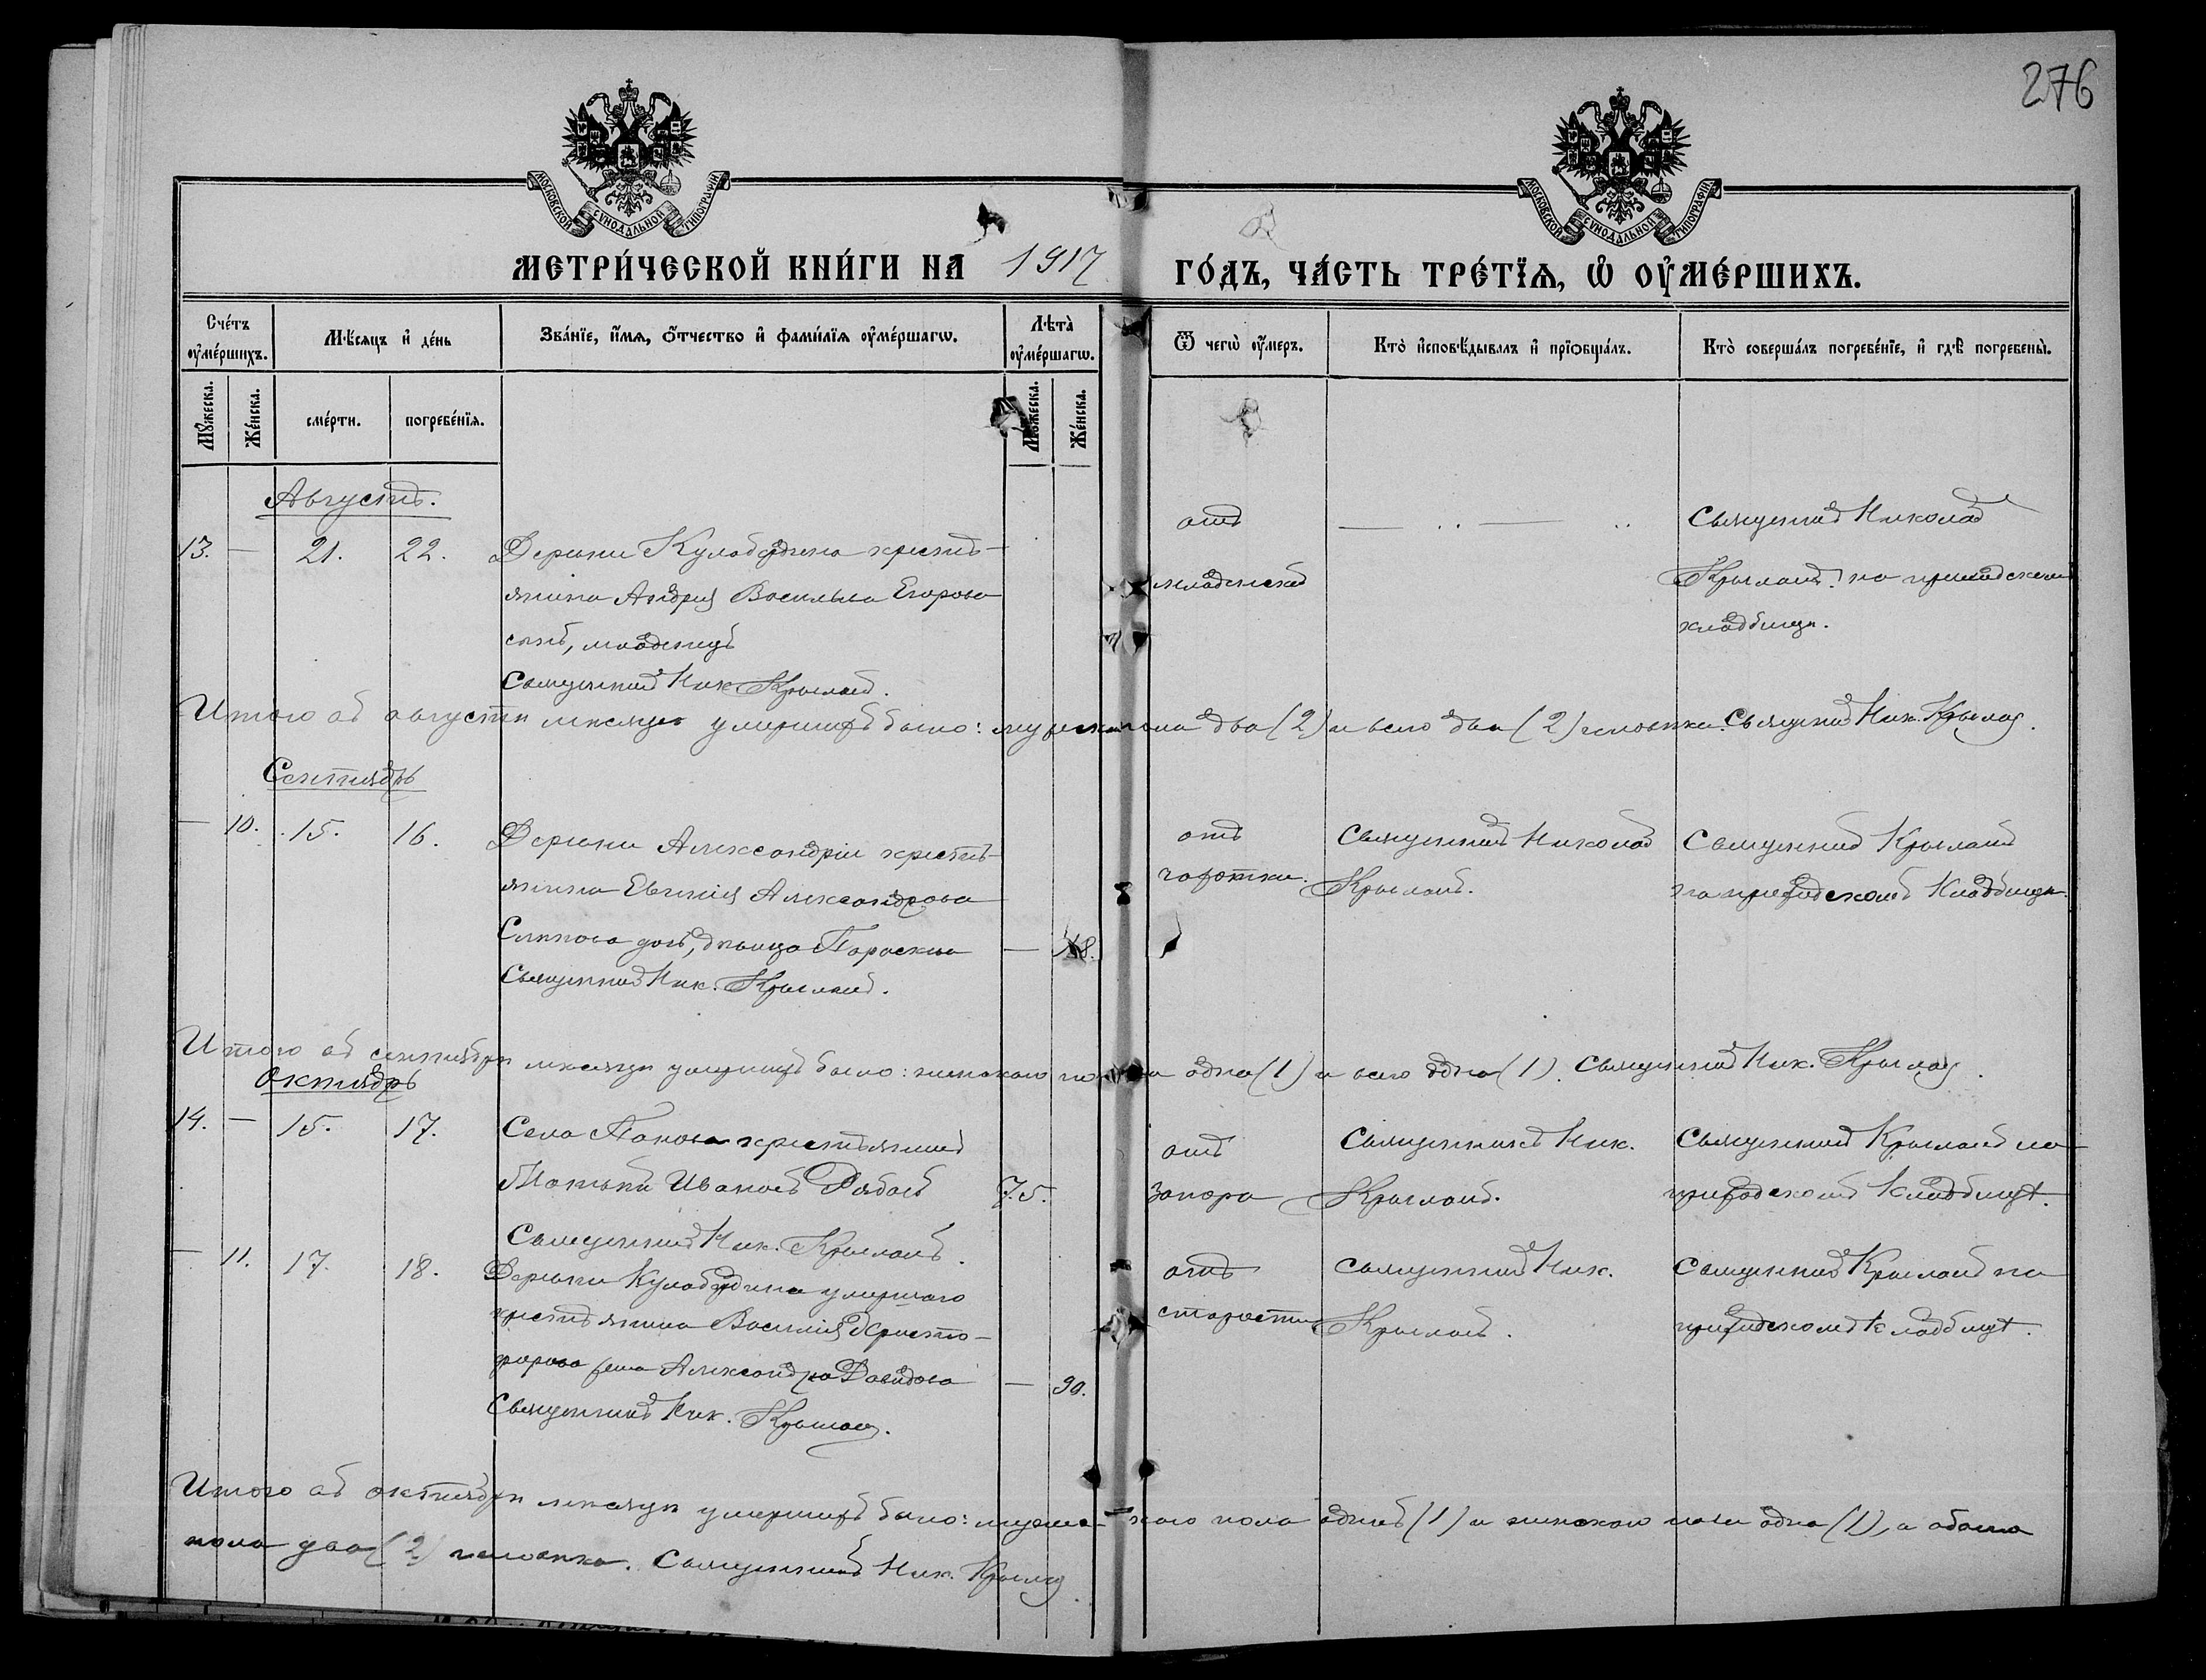 276
МОСКОВСКОЙ СѴНОДАЛЬНОЙ ТИПОГРАФІИ
МОСКОВСКОЙ СѴНОДАЛЬНОЙ ТИПОГРАФІИ
МЕТРИ́ЧЕСКОЙ КНИ́ГИ НА 1917 ГО́ДЪ, ЧА́СТЬ ТРЕ́ТЇѦ, Ѡ҆ ОУ҆МЕ́РШИХЪ.
Сче́тъ оу҆ме́ршихъ.
Мѣ́сяцъ и҆ де́нь
Зва́нїе, и҆́мя, ѻ҆́тчество и҆ фами́лїя оу҆ме́ршагѡ.
Лѣта̀ оу҆ме́ршагѡ.
Ѿ чегѡ̀ оу҆́меръ.
Кто̀ и҆сповѣ́дывалъ и҆ прїѡбща́лъ.
Кто̀ соверша́лъ погребе́нїе, и҆ гдѣ̀ погребены̀.
Мꙋ́жеска.
Же́нска.
сме́рти.
погребе́нїя.
Мꙋ́жеска.
Же́нска.
Августъ.
13. — 21. 22.
Деревни Кулабердина кресть-
янина Андрея Васильева Егорова
сынъ, младенецъ
Священникъ Ник. Крыловъ.
отъ
младенской
— .. — ..
Священникъ Николай
Крыловъ на приходскомъ
кладбищѣ.
Итого въ августѣ мѣсяцѣ умершихъ было: мужска пола два (2) и всего два (2) человѣка. Священникъ Ник. Крыловъ.
Сентябрь
— 10. 15. 16.
Деревни Александріи кресть-
янина Евгенія Александрова
дочь, дѣвица Параскева
Священникъ Ник. Крыловъ.
— 18.
отъ
чахотки.
Священникъ Николай
Крыловъ.
Священникъ Крыловъ
на приходскомъ кладбищѣ.
Итого въ сентябрѣ мѣсяцѣ умершихъ было: женскаго пола одна (1) и всего одна (1). Священникъ Ник. Крыловъ.
Октябрь
14. — 15. 17.
Села Панова крестьянинъ
Матвѣй Ивановъ Рябовъ
Священникъ Ник. Крыловъ.
75.
отъ
запора
Священникъ Ник.
Крыловъ.
Священникъ Крыловъ на
приходскомъ кладбищѣ.
— 11. 17. 18.
Деревни Кулабердина умершаго
крестьянина Василія Христо-
форова жена Александра Давидова
Священникъ Ник. Крыловъ.
— 90.
отъ
старости
Священникъ Ник.
Крыловъ.
Священникъ Крыловъ на
приходскомъ кладбищѣ.
Итого въ октябрѣ мѣсяцѣ умершихъ было: мужескаго пола одинъ (1) и женскаго пола одна (1), а обоего
пола два (2) человѣка. Священникъ Ник. Крыловъ